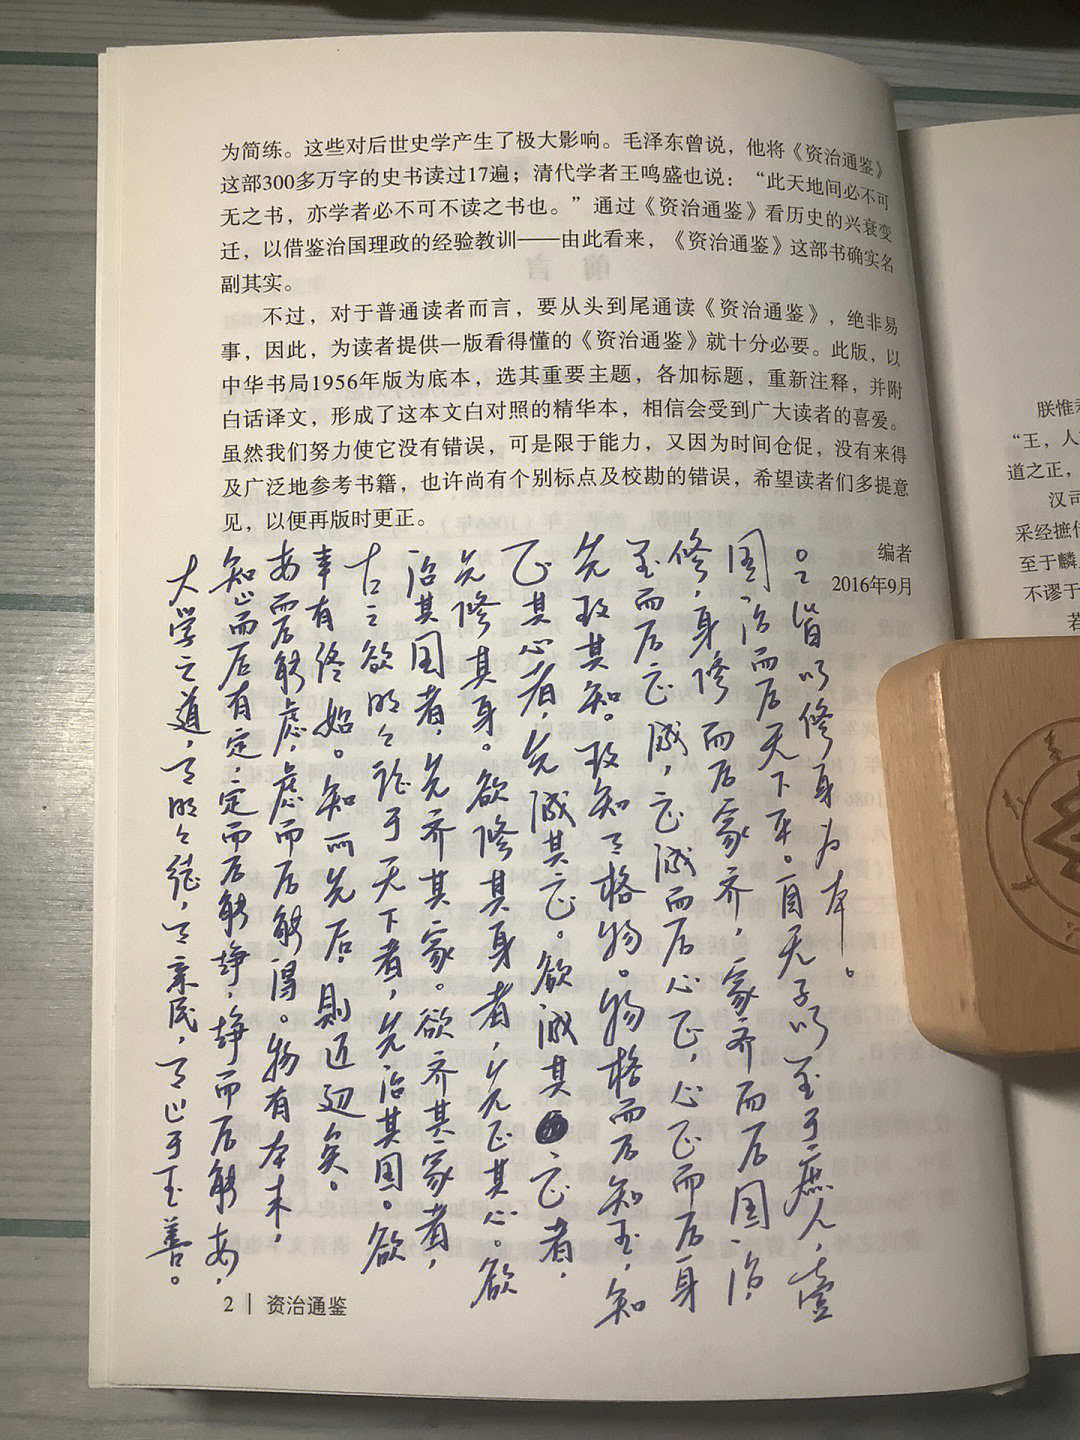 为简练。这些对后世史学产生了极大影响。毛泽东曾说，他将《资治通鉴》
这部300多万字的史书读过17遍；清代学者王鸣盛也说：“此天地间必不可
无之书，亦学者必不可不读之书也。”通过《资治通鉴》看历史的兴衰变
迁，以借鉴治国理政的经验教训——由此看来，《资治通鉴》这部书确实名
副其实。
不过，对于普通读者而言，要从头到尾通读《资治通鉴》，绝非易
事，因此，为读者提供一版看得懂的《资治通鉴》就十分必要。此版，以
中华书局1956年版为底本，选其重要主题，各加标题，重新注释，并附
白话译文，形成了这本文白对照的精华本，相信会受到广大读者的喜爱。
虽然我们努力使它没有错误，可是限于能力，又因为时间仓促，没有来得
及广泛地参考书籍，也许尚有个别标点及校勘的错误，希望读者们多提意
见，以便再版时更正。
编者
2016年9月
大学之道，在明明德，在亲民，在止于至善。
知止而后有定，定而后能静，静而后能安，
安而后能虑，虑而后能得。物有本末，
事有终始。知所先后，则近道矣。
古之欲明明德于天下者，先治其国。欲
治其国者，先齐其家。欲齐其家者，
先修其身。欲修其身者，先正其心。欲
正其心者，先诚其意。欲诚其意者，
先致其知。致知在格物。物格而后知至，知
至而后意诚，意诚而后心正，心正而后身
修，身修而后家齐，家齐而后国治，
国治而后天下平。自天子以至于庶人，壹
是皆以修身为本。
2 | 资治通鉴
朕惟
“王，人
道之正，
汉司
采经摭
至于麟
不谬于
若